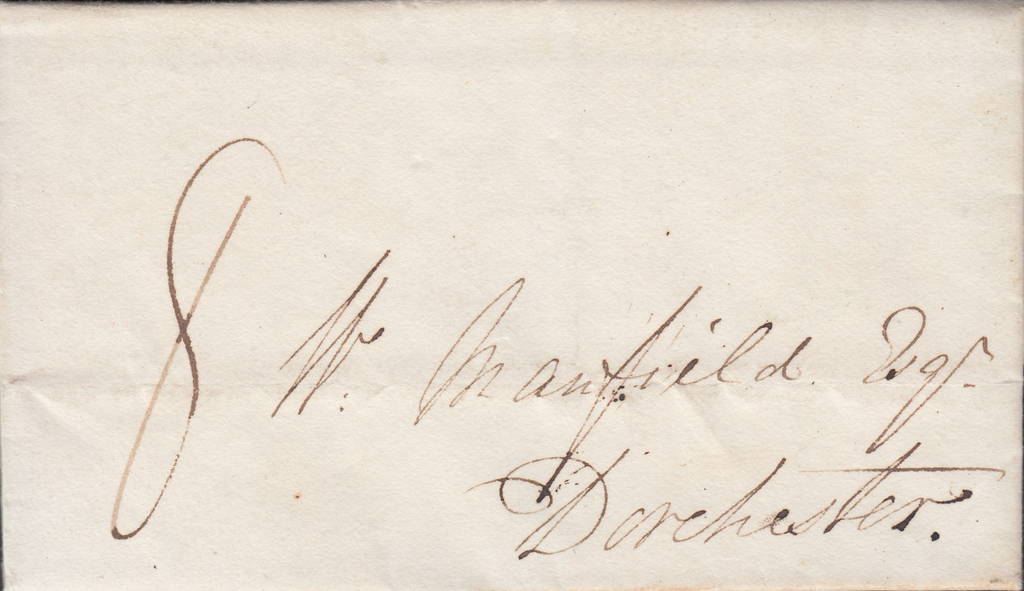 8
W. Manfield Esqr.
Dorchester.